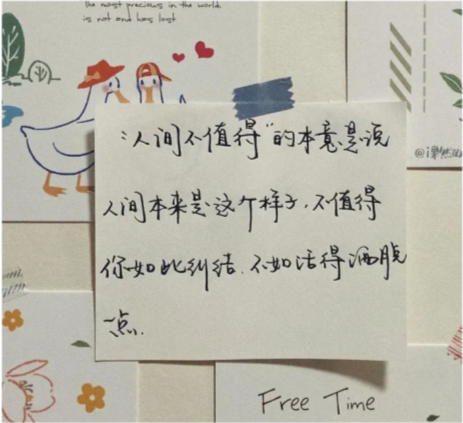 the most precious in the world
is not and has lost
“人间不值得”的本意是说
人间本来是这个样子，不值得
你如此纠结，不如活得洒脱
一点.
Free Time